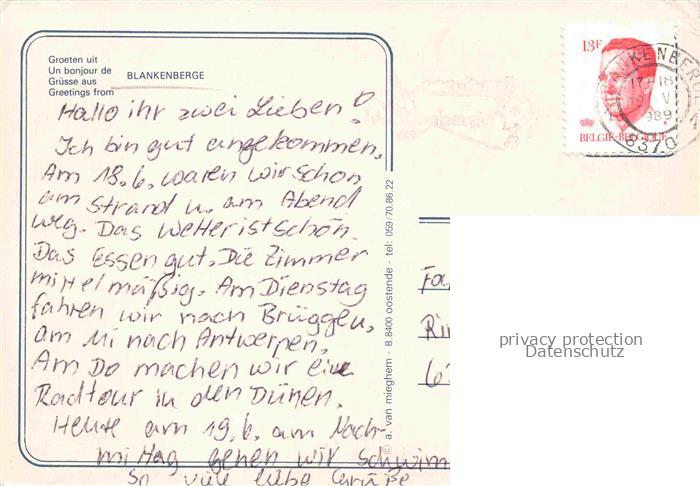 Groeten uit
Un bonjour de
Grüsse aus
Greetings from
BLANKENBERGE
Hallo ihr zwei Lieben!
Ich bin gut angekommen.
Am 18.6. waren wir schon
am Strand u. am Abend
weg. Das Wetter ist schön.
Das Essen gut. Die Zimmer
mittelmäßig. Am Dienstag
fahren wir nach Brüggen,
am Mi nach Antwerpen.
Am Do machen wir eine
Radtour in den Dünen.
Heute am 19.6. am Nach-
mittag gehen wir schwim
So viele liebe Grüße
© a. van mieghem - B 8400 oostende - tel: 059/70.86.22
13F
BELGIE-BELGIQUE
1989
8370
Fa
Ri
6
privacy protection
Datenschutz